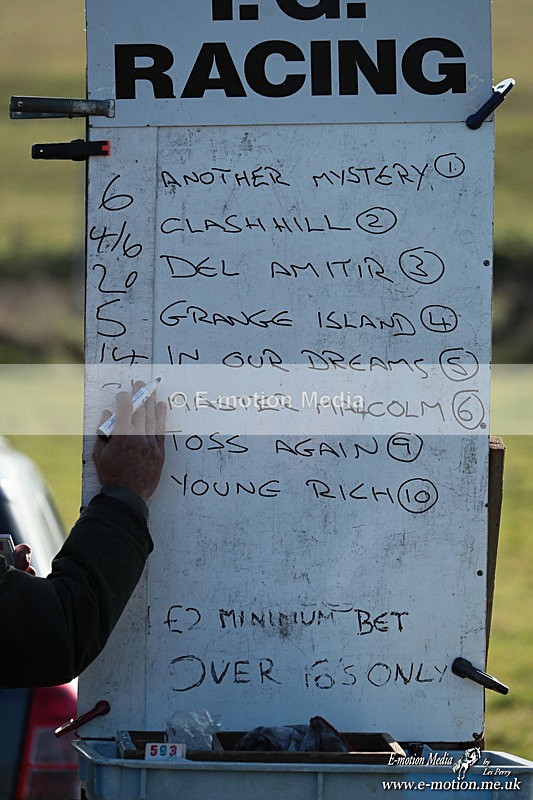 T.G.
RACING
6 ANOTHER MYSTERY 1
4/6 CLASH HILL 2
20 DEL AMITIR 3
5 GRANGE ISLAND 4
14 IN OUR DREAMS 5
MALCOLM 6
© E-motion Media
TOSS AGAIN 9
YOUNG RICH 10
£2 MINIMUM BET
OVER 16'S ONLY
593
E-motion Media by Les Perry
www.e-motion.me.uk